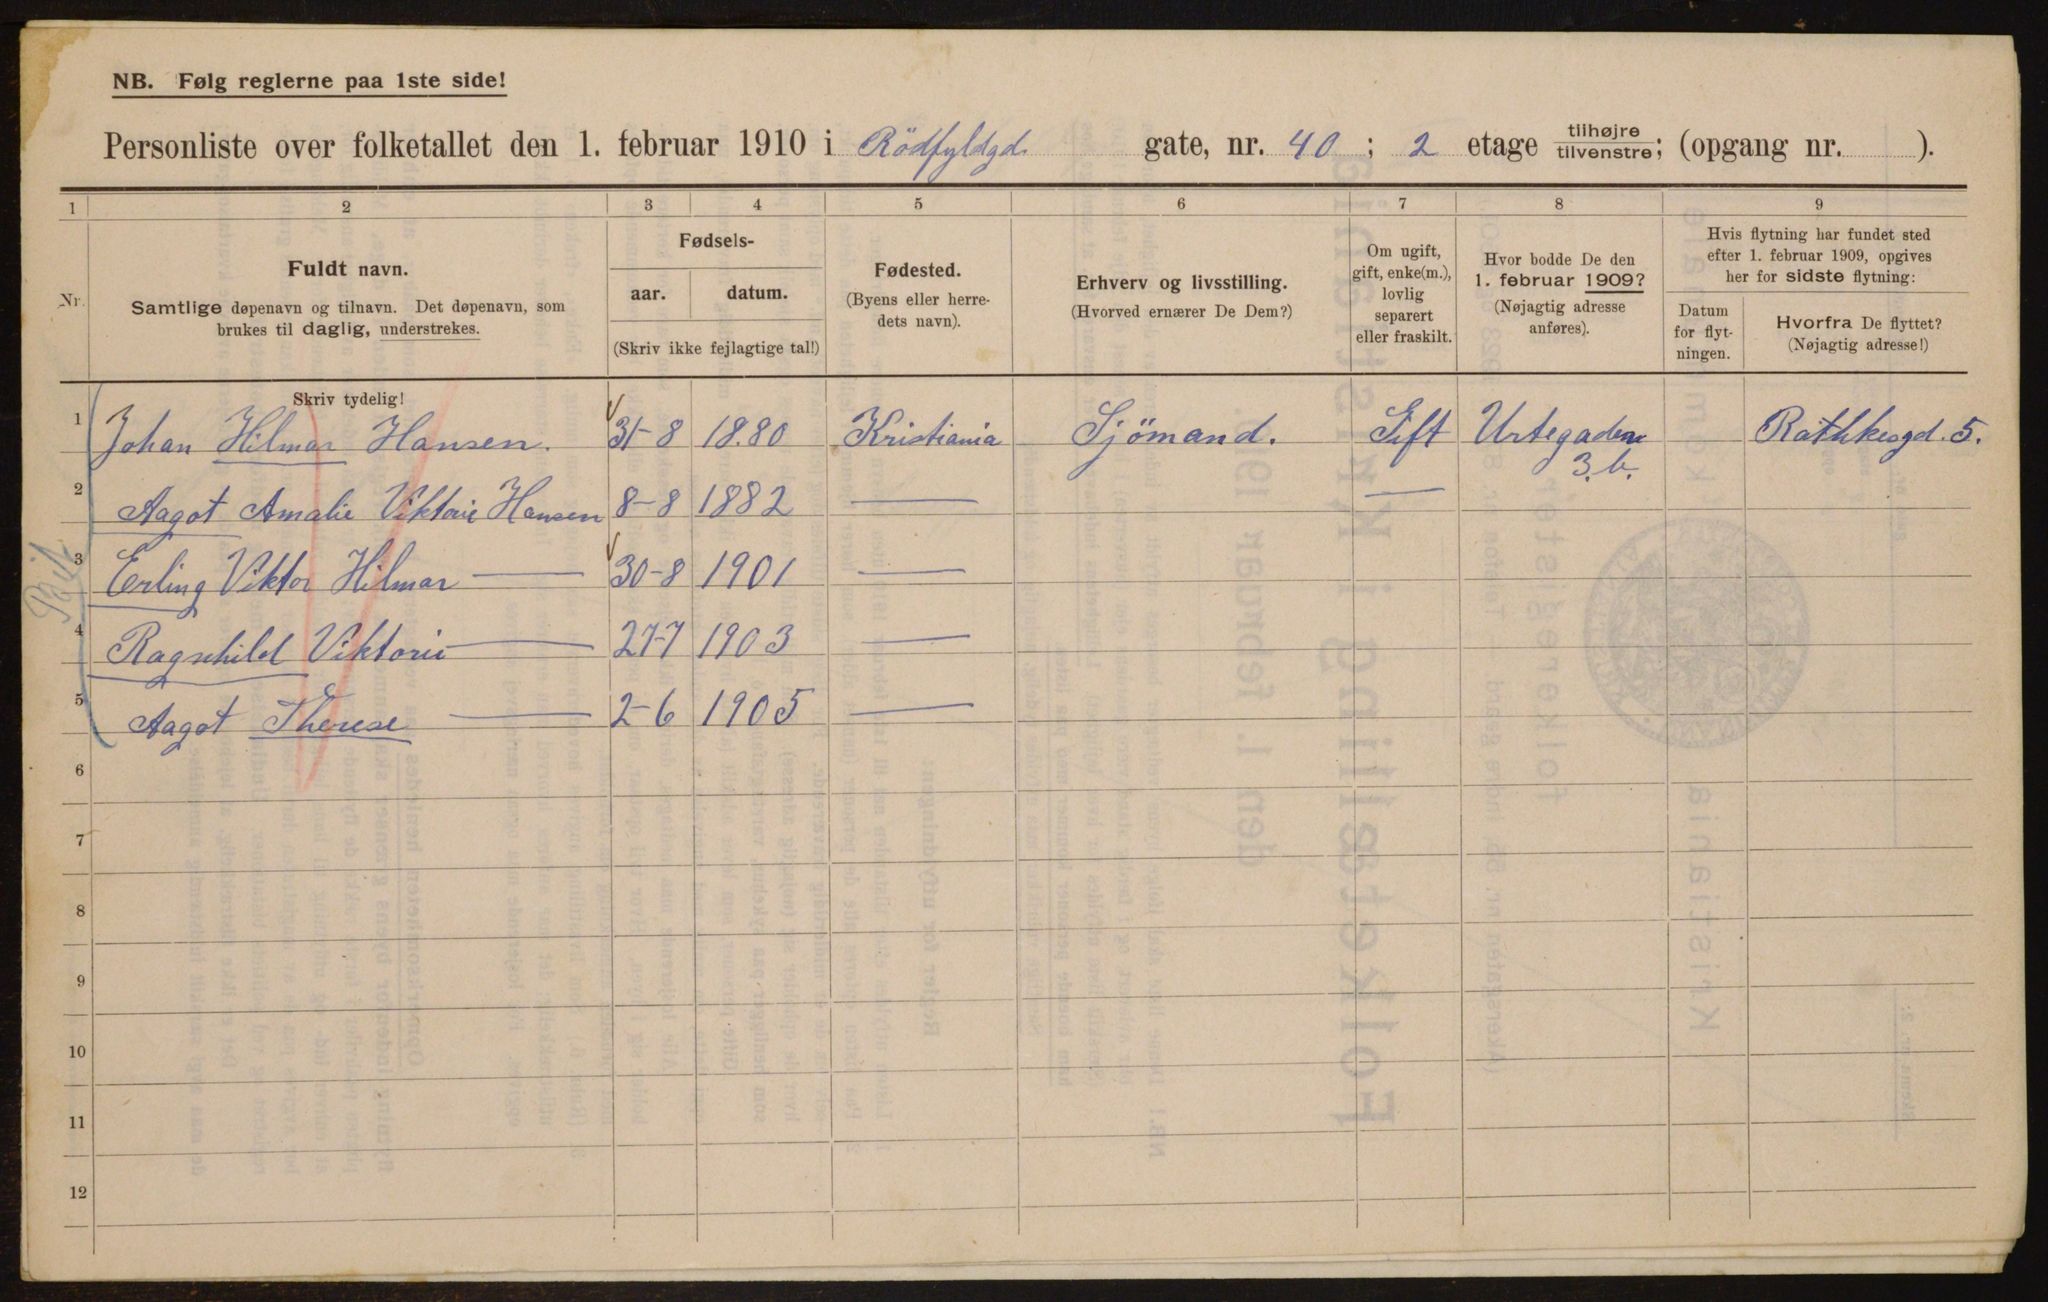 NB. Følg reglerne paa 1ste side!
Personliste over folketallet den 1. februar 1910 i Rödfyldgd. gate, nr. 40; 2 etage tilhøjre tilvenstre; (opgang nr. ).
1 2 3 4 5 6 7 8 9
Nr.
Fuldt navn.
Samtlige døpenavn og tilnavn. Det døpenavn, som
brukes til daglig, understrekes.
Skriv tydelig!
Fødsels-
aar. datum.
(Skriv ikke fejlagtige tal!)
Fødested.
(Byens eller herre-
dets navn).
Erhverv og livsstilling.
(Hvorved ernærer De Dem?)
Om ugift,
gift, enke(m.),
lovlig
separert
eller fraskilt.
Hvor bodde De den
1. februar 1909?
(Nøjagtig adresse
anføres).
Hvis flytning har fundet sted
efter 1. februar 1909, opgives
her for sidste flytning:
Datum
for flyt-
ningen.
Hvorfra De flyttet?
(Nøjagtig adresse!)
1 Johan Hilmar Hansen. 31-8 18.80 Kristiania Sjömand. Gift Urtegaden 3.b. Rathkesgd. 5.
2 Aagot Amalie Viktorie Hansen 8-8 1882 — —
3 Erling Viktor Hilmar — 30-8 1901 —
4 Ragnhild Viktorie — 27-7 1903 —
5 Aagot Therese — 2-6 1905 —
6
7
8
9
10
11
12